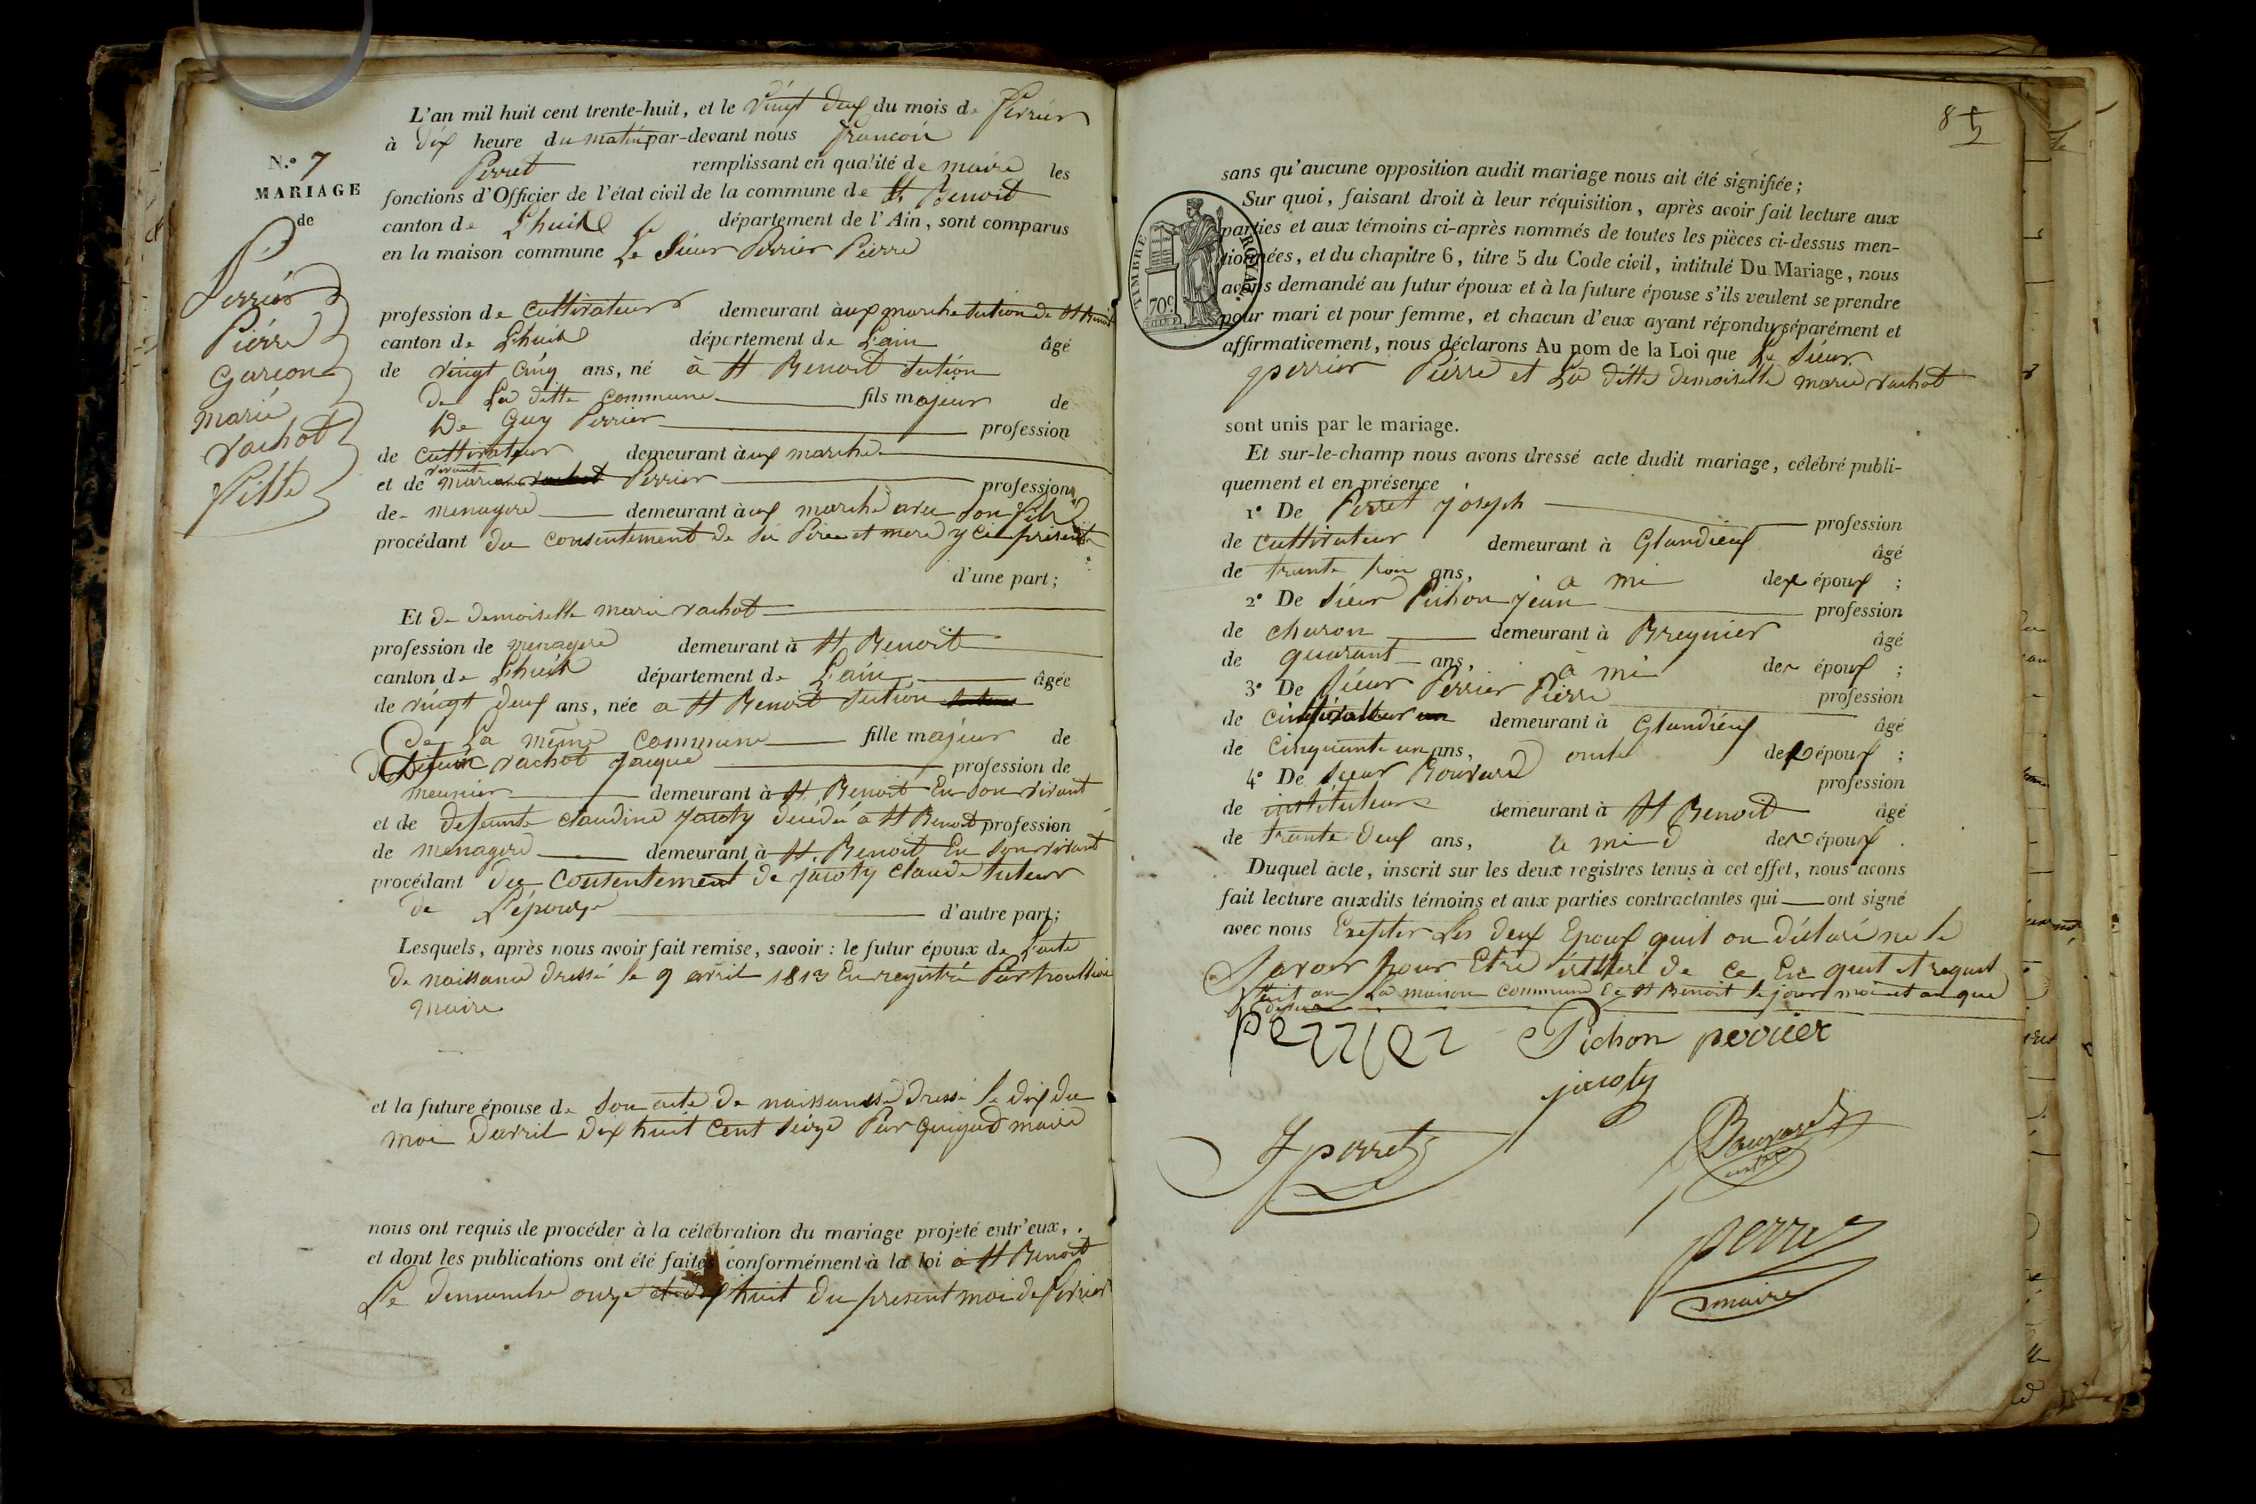 N.° 7
MARIAGE
de
Perrier
Pierre
Garçon
marie
vachot
fille
L'an mil huit cent trente-huit, et le vingt deux du mois de février
à dix heure du matin par-devant nous francois
Perret remplissant en qualité de maire les
fonctions d'Officier de l'état civil de la commune de St Benoit
canton de Lhuis département de l'Ain, sont comparus
en la maison commune Le Sieur Perrier Pierre
profession de cultivateur demeurant aux marche section de St Benoit
canton de Lhuis département de L'ain âgé
de vingt cinq ans, né à St Benoit section
de La ditte commune fils majeur de
De Guy Perrier profession
de cultivateur demeurant aux marche
et de vivante Perrier profession
de menagere demeurant aux marche avec son fils
procédant du consentement de Pere et mere y ci present
d'une part;
Et de demoiselle marie vachot
profession de menagere demeurant à St Benoit
canton de Lhuis département de L'ain âgée
de vingt deux ans, née a St Benoit section
De La même commune fille majeur de
Defunt vachot Jaque profession de
meunier demeurant à St Benoit En son vivant
et de defeunte claudine Jacoty decedee a St Benoit profession
de menagere demeurant à St Benoit En son vivant
procédant du consentement de Jacoty claude tuteur
de L'épouse d'autre part;
Lesquels, après nous avoir fait remise, savoir : le futur époux de L'acte
de naissance dressé le 9 avril 1813 Enregistré Par
maire
et la future épouse de son acte de naissance dressé le dix du
moi davril dix huit cent seize Par Guigard maire
nous ont requis de procéder à la célébration du mariage projeté entr'eux,
et dont les publications ont été faites conformément à la loi à St Benoit
Le dimanche onze et dix huit du present moi de fevrier
8
2
TIMBRE ROYAL
70 c.
sans qu'aucune opposition audit mariage nous ait été signifiée;
Sur quoi, faisant droit à leur réquisition, après avoir fait lecture aux
parties et aux témoins ci-après nommés de toutes les pièces ci-dessus men-
tionnées, et du chapitre 6, titre 5 du Code civil, intitulé Du Mariage, nous
avons demandé au futur époux et à la future épouse s'ils veulent se prendre
pour mari et pour femme, et chacun d'eux ayant répondu séparément et
affirmativement, nous déclarons Au nom de la Loi que Le Sieur
perrier Pierre et La ditte demoiselle marie vachot
sont unis par le mariage.
Et sur-le-champ nous avons dressé acte dudit mariage, célébré publi-
quement et en présence
1° De Perret Joseph profession
de cultivateur demeurant à Glandieux âgé
de trente ans, a mi des époux ;
2° De Sieur Pichon Jean profession
de charon demeurant à Bregnier âgé
de quarant ans, a mi des époux ;
3° De Sieur Perrier Pierre profession
de cultivateur demeurant à Glandieux âgé
de cinquante un ans, oncle des époux ;
4° De Sieur Bouvard profession
de instituteur demeurant à St Benoit âgé
de trente deux ans, a mi des époux .
Duquel acte, inscrit sur les deux registres tenus à cet effet, nous avons
fait lecture auxdits témoins et aux parties contractantes qui ont signé
avec nous Exepter Les deux Epoux quit on déclaré ne le
savoir pour Etre de ce En quit et requit
fait an La maison commune de St Benoit le jour moi et an que
dessus
Perrier Pichon perrier
jacoty
J perret
Bouvard
perret
maire